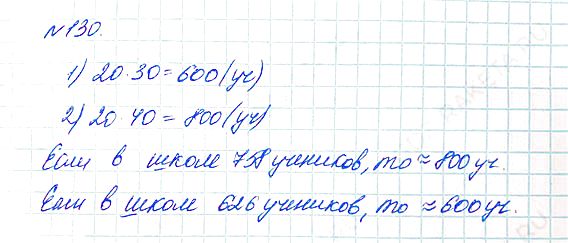 №130.
1) 20·30=600(уч)
2) 20·40=800(уч)
Если в школе 758 учеников, то ≈800уч.
Если в школе 626 учеников, то ≈600уч.